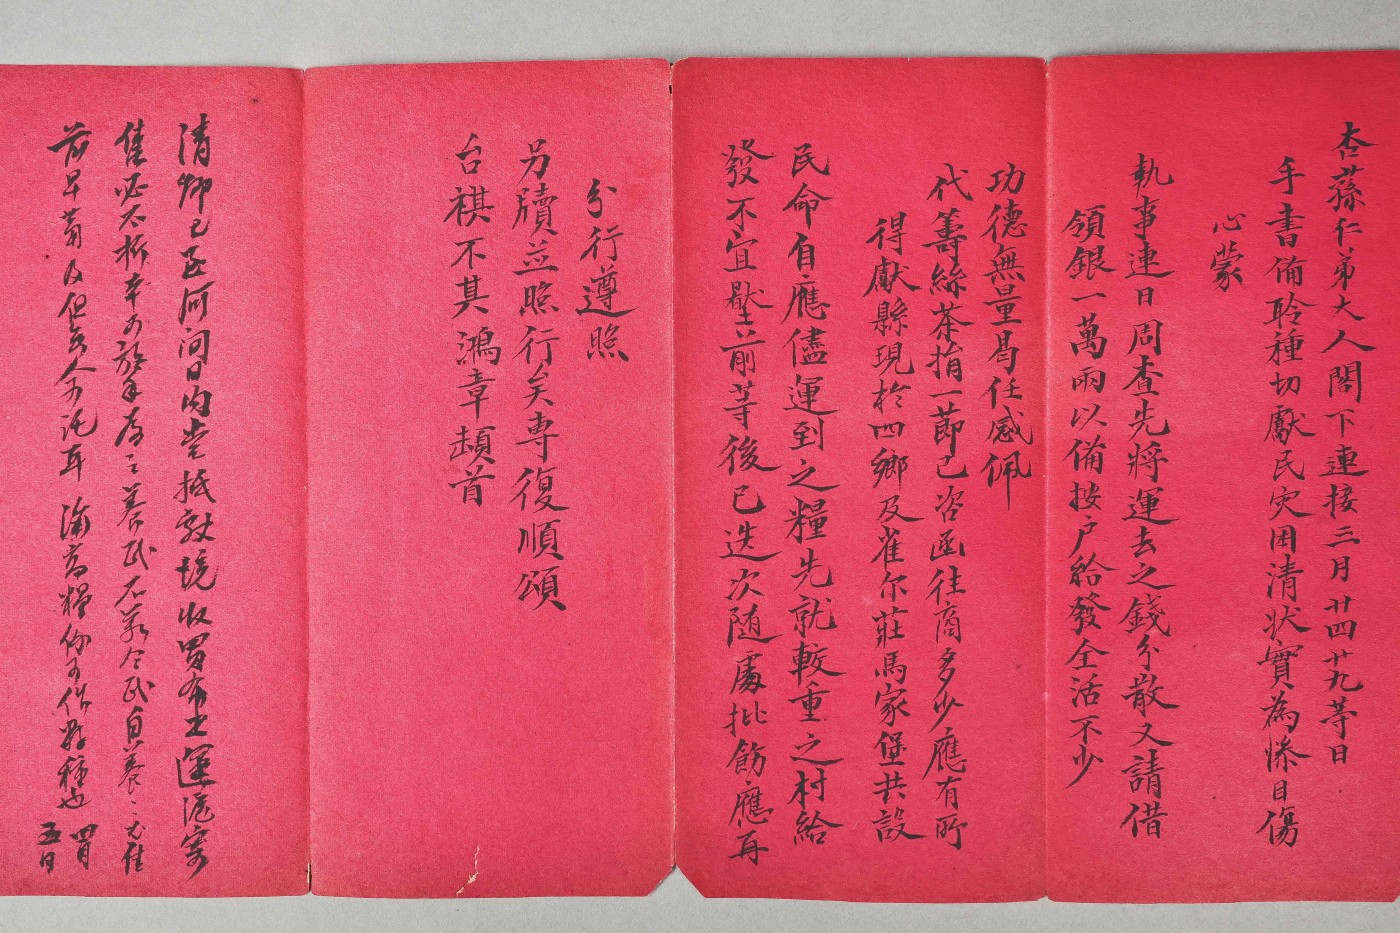 杏蓀仁弟大人閣下連接三月廿四廿九等日
手書備聆種切獻民災困清狀實為慘目傷
心蒙
執事連日周查先將運去之錢分散又請借
領銀一萬兩以備按户給發全活不少
功德無量曷任感佩
代籌絲茶捐一節已咨函往商多少應有所
得獻縣現於四鄉及雀尔莊馬家堡共設
民命自應儘運到之糧先就較重之村給
發不宜壓前等後已迭次随處批飭應再
分行遵照
另牘並照行矣專復順頌
台祺不具鴻章頓首
清卿已至河間日內當抵獻境收買布土運滬寄
售必不折本可放手為之養民不若令民自養
前早籌及但無人可託耳
四月
五日